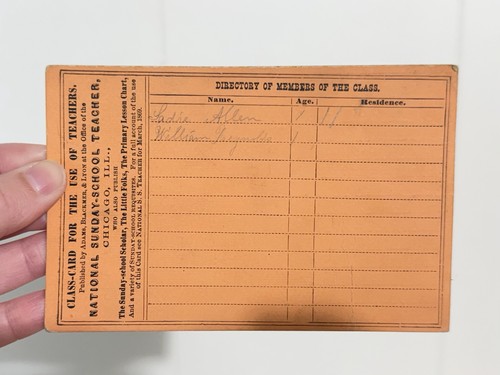 CLASS-CARD FOR THE USE OF TEACHERS.
Published by ADAMS, BLACKMER, & LYON at the Office of the
NATIONAL SUNDAY-SCHOOL TEACHER,
CHICAGO, ILL.,
WHO ALSO PUBLISH
The Sunday-school Scholar, The Little Folks, The Primary Lesson Chart,
And a variety of SUNDAY-SCHOOL REQUISITES. For a full account of the use
of this Card see NATIONAL S. S. TEACHER for March, 1869.
DIRECTORY OF MEMBERS OF THE CLASS.
Name. Age. Residence.
Sadie Allen
William